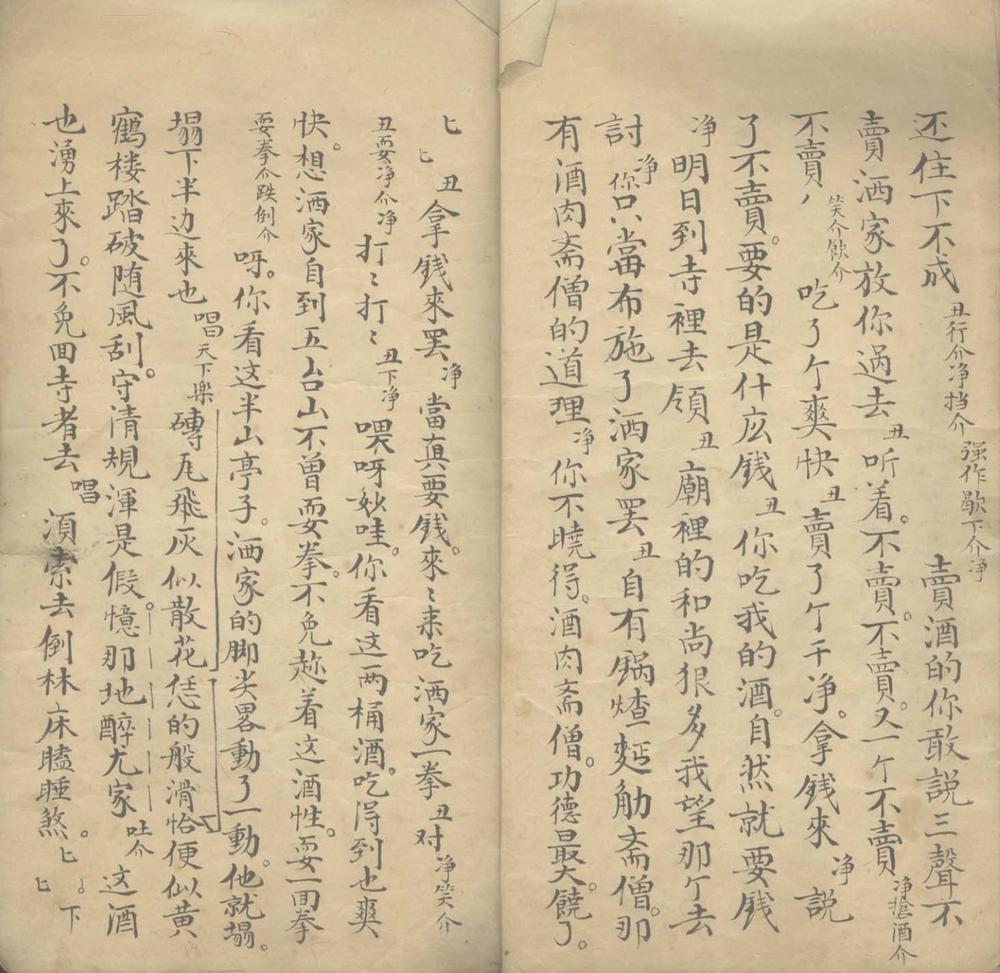 还住下不成丑行介净挡介强作歇下介净賣酒的你敢説三聲不
賣洒家放你过去丑听着。不賣。不賣。又一个不賣净搶酒介
不賣，笑介飲介吃了个爽快丑賣了个干净。拿钱來净説
了不賣。要的是什庅钱丑你吃我的酒。自然就要钱
净明日到寺裡去領丑廟裡的和尚狠多我望那个去
討净你只當布施了洒家罢丑自有鍋渣麪觔斋僧。那
有酒肉斋僧的道理净你不曉得。酒肉斋僧。功德最大。饒了。
匕匕丑拿钱來罢净當真要钱。來〻来吃洒家一拳丑对净笑介
丑耍净介净打〻打〻丑下净喂呀妙哇。你看这两桶酒。吃得到也爽
快。想洒家自到五台山不曾耍拳。不免趂着这酒性。耍一面拳
耍拳介跌倒介呀。你看这半山亭子。洒家的脚尖畧動了一動。他就塌。
塌下半边來也唱天下樂磚瓦飛灰似散花恁的般滑恰便似黄
鶴楼踏破随風刮。守清規渾是假。憶那地醉尤家吐介这酒
也湧上來了。不免回寺者去唱須索去倒林床瞌睡煞。匕匕下